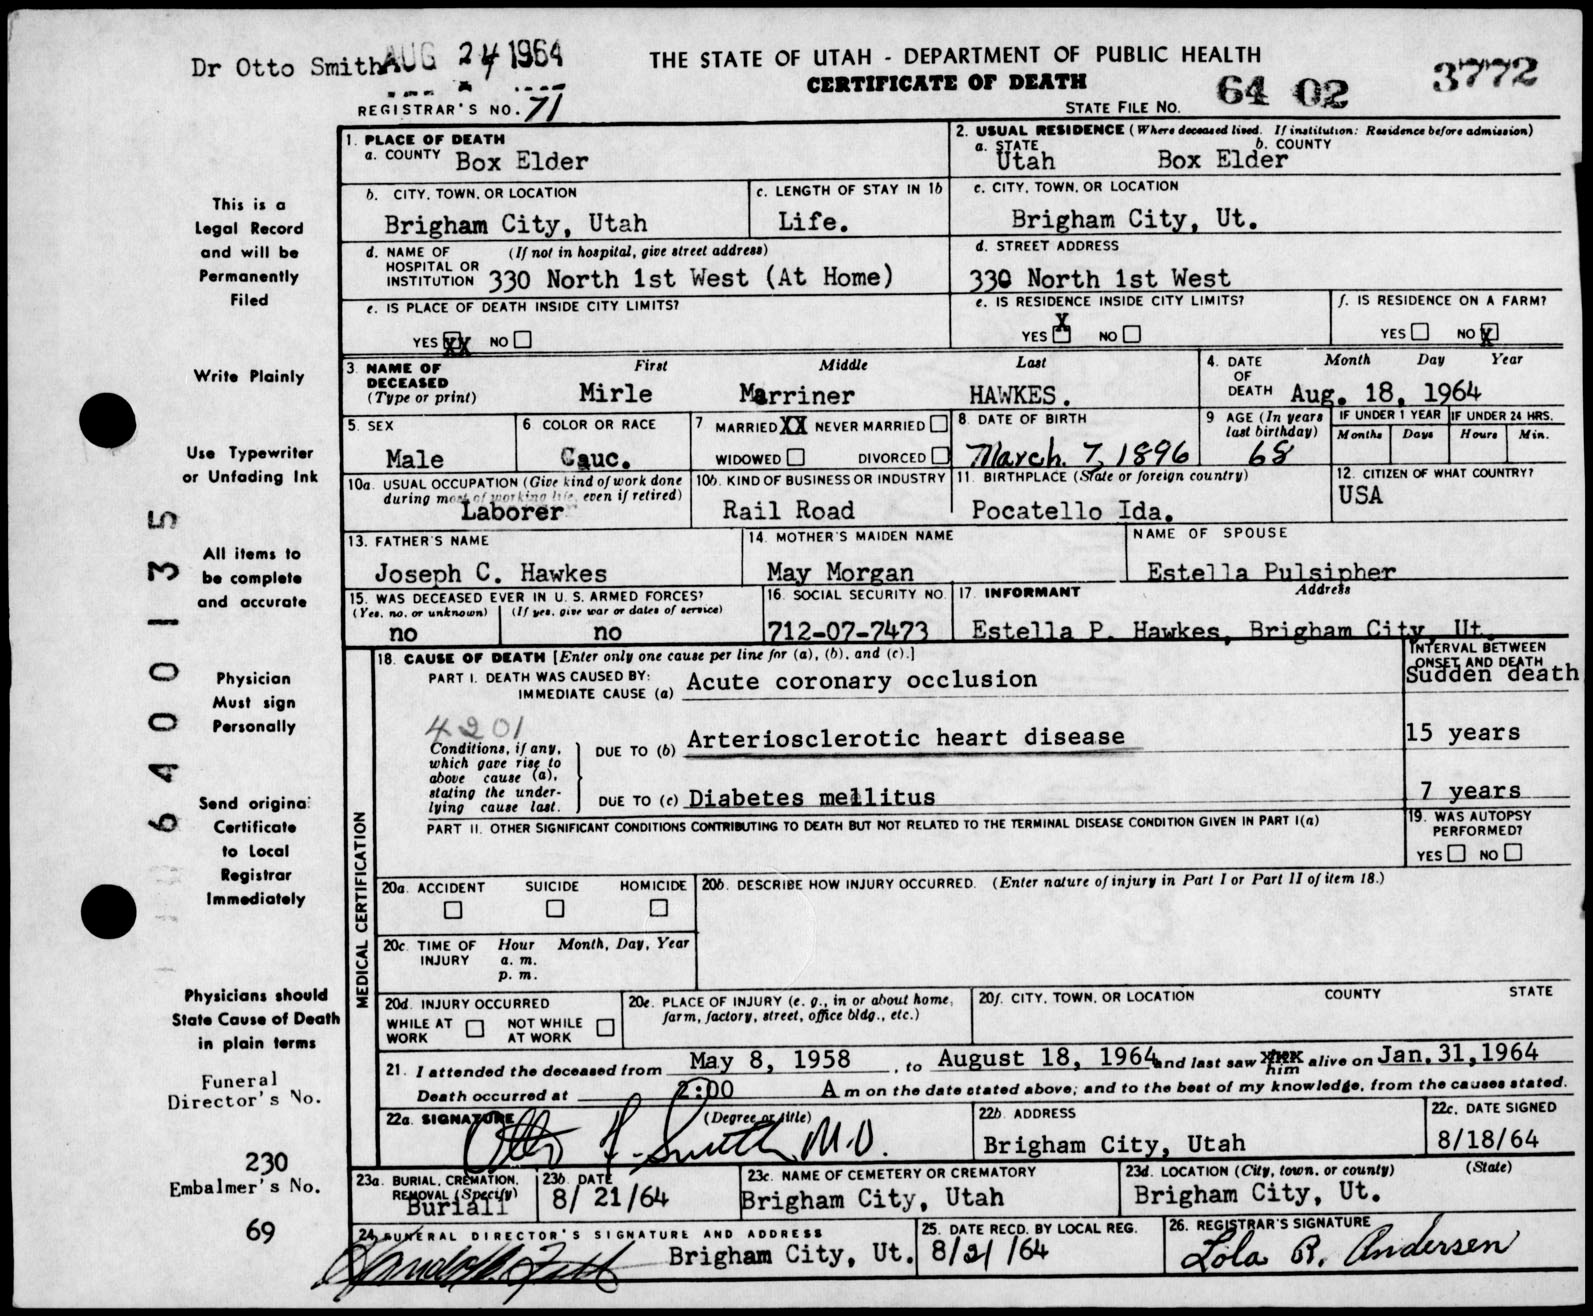 Dr Otto Smith AUG 24 1964
THE STATE OF UTAH - DEPARTMENT OF PUBLIC HEALTH
CERTIFICATE OF DEATH
REGISTRAR'S NO. 71
STATE FILE NO. 64 02 3772
This is a
Legal Record
and will be
Permanently
Filed
Write Plainly
Use Typewriter
or Unfading Ink
All items to
be complete
and accurate
Physician
Must sign
Personally
Send original
Certificate
to Local
Registrar
Immediately
Physicians should
State Cause of Death
in plain terms
Funeral
Director's No.
230
Embalmer's No.
69
6400135
1. PLACE OF DEATH
a. COUNTY Box Elder
2. USUAL RESIDENCE (Where deceased lived. If institution: Residence before admission)
a. STATE Utah b. COUNTY Box Elder
b. CITY, TOWN, OR LOCATION
Brigham City, Utah
c. LENGTH OF STAY IN 1b
Life.
c. CITY, TOWN, OR LOCATION
Brigham City, Ut.
d. NAME OF HOSPITAL OR INSTITUTION (If not in hospital, give street address)
330 North 1st West (At Home)
d. STREET ADDRESS
330 North 1st West
e. IS PLACE OF DEATH INSIDE CITY LIMITS?
YES XX NO
e. IS RESIDENCE INSIDE CITY LIMITS?
YES X NO
f. IS RESIDENCE ON A FARM?
YES NO X
3. NAME OF DECEASED (Type or print)
First Middle Last
Mirle Marriner HAWKES.
4. DATE OF DEATH Month Day Year
Aug. 18, 1964
5. SEX
Male
6 COLOR OR RACE
Cauc.
7 MARRIED XX NEVER MARRIED
WIDOWED DIVORCED
8 DATE OF BIRTH
March. 7, 1896
9 AGE (In years last birthday)
68
IF UNDER 1 YEAR IF UNDER 24 HRS.
Months Days Hours Min.
10a. USUAL OCCUPATION (Give kind of work done
during most of working life, even if retired)
Laborer
10b. KIND OF BUSINESS OR INDUSTRY
Rail Road
11. BIRTHPLACE (State or foreign country)
Pocatello Ida.
12. CITIZEN OF WHAT COUNTRY?
USA
13. FATHER'S NAME
Joseph C. Hawkes
14. MOTHER'S MAIDEN NAME
May Morgan
NAME OF SPOUSE
Estella Pulsipher
15. WAS DECEASED EVER IN U. S. ARMED FORCES?
(Yes, no, or unknown) (If yes, give war or dates of service)
no no
16. SOCIAL SECURITY NO.
712-07-7473
17. INFORMANT Address
Estella P. Hawkes, Brigham City, Ut.
MEDICAL CERTIFICATION
18. CAUSE OF DEATH [Enter only one cause per line for (a), (b), and (c).]
INTERVAL BETWEEN
ONSET AND DEATH
PART I. DEATH WAS CAUSED BY:
IMMEDIATE CAUSE (a) Acute coronary occlusion Sudden death
4201
Conditions, if any,
which gave rise to
above cause (a),
stating the under-
lying cause last.
DUE TO (b) Arteriosclerotic heart disease 15 years
DUE TO (c) Diabetes mellitus 7 years
PART II. OTHER SIGNIFICANT CONDITIONS CONTRIBUTING TO DEATH BUT NOT RELATED TO THE TERMINAL DISEASE CONDITION GIVEN IN PART I(a)
19. WAS AUTOPSY
PERFORMED?
YES NO
20a. ACCIDENT SUICIDE HOMICIDE
20b. DESCRIBE HOW INJURY OCCURRED. (Enter nature of injury in Part I or Part II of item 18.)
20c. TIME OF INJURY Hour Month, Day, Year
a. m.
p. m.
20d. INJURY OCCURRED
WHILE AT WORK NOT WHILE AT WORK
20e. PLACE OF INJURY (e. g., in or about home,
farm, factory, street, office bldg., etc.)
20f. CITY, TOWN, OR LOCATION COUNTY STATE
21. I attended the deceased from May 8, 1958, to August 18, 1964 and last saw him alive on Jan. 31, 1964
Death occurred at 2:00 A m on the date stated above; and to the best of my knowledge, from the causes stated.
22a. SIGNATURE (Degree or title)
Otto F. Smith M.D.
22b. ADDRESS
Brigham City, Utah
22c. DATE SIGNED
8/18/64
23a. BURIAL, CREMATION,
REMOVAL (Specify)
Buriall
23b. DATE
8/ 21/64
23c. NAME OF CEMETERY OR CREMATORY
Brigham City, Utah
23d. LOCATION (City, town, or county) (State)
Brigham City, Ut.
24. FUNERAL DIRECTOR'S SIGNATURE AND ADDRESS
Brigham City, Ut.
25. DATE RECD. BY LOCAL REG.
8/21/64
26. REGISTRAR'S SIGNATURE
Lola R. Andersen